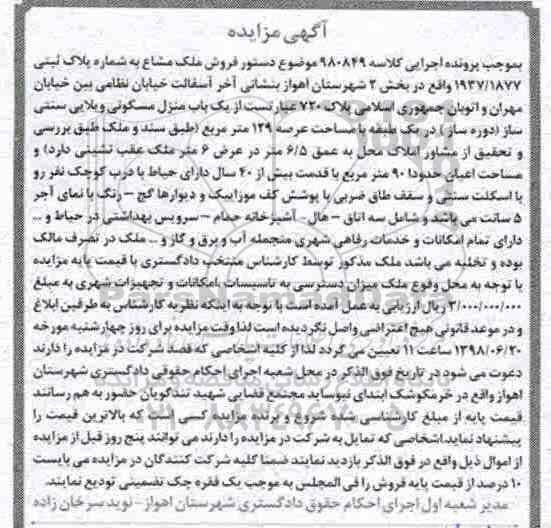 آگهی مزایده
بموجب پرونده اجرایی کلاسه ۹۸۰۸۴۹ موضوع دستور فروش ملک مشاع به شماره پلاک ثبتی
۱۹۳۷/۱۸۷۷ واقع در بخش ۲ شهرستان اهواز بنشانی آخر آسفالت خیابان نظامی بین خیابان
مهران و اتوبان جمهوری اسلامی پلاک ۷۲۰ عبارتست از یک باب منزل مسکونی ویلایی سنتی
ساز (دوره ساز) در یک طبقه با مساحت عرصه ۱۲۹ متر مربع (طبق سند و ملک طبق بررسی
و تحقیق از مشاور املاک محل به عمق ۶/۵ متر در عرض ۶ متر ملک عقب نشینی دارد) و
مساحت اعیان حدودا ۹۰ متر مربع با قدمت بیش از ۴۰ سال دارای حیاط با درب کوچک نفر رو
با اسکلت سنتی و سقف طاق ضربی با پوشش کف موزاییک و دیوارها گچ – رنگ با نمای آجر
۵ سانت می باشد و شامل سه اتاق – هال – آشپزخانه حمام – سرویس بهداشتی در حیاط و ...
دارای تمام امکانات و خدمات رفاهی شهری منجمله آب و برق و گاز و ... ملک در تصرف مالک
بوده و تخلیه می باشد ملک مذکور توسط کارشناس منتخب دادگستری با قیمت پایه مزایده
با توجه به محل وقوع ملک میزان دسترسی به تاسیسات ،امکانات و تجهیزات شهری به مبلغ
۳/۰۰۰/۰۰۰/۰۰۰ ریال ارزیابی به عمل آمده است با توجه به اینکه نظریه کارشناس به طرفین ابلاغ
و در موعد قانونی هیچ اعتراضی واصل نگردیده است لذا وقت مزایده برای روز چهارشنبه مورخه
۱۳۹۸/۰۶/۲۰ ساعت ۱۱ تعیین می گردد لذا از کلیه اشخاصی که قصد شرکت در مزایده را دارند
دعوت می شود در تاریخ فوق الذکر در محل شعبه اجرای احکام حقوقی دادگستری شهرستان
اهواز واقع در خرمکوشک ابتدای نیوساید مجتمع قضایی شهید تندگویان حضور به هم رسانند
قیمت پایه از مبلغ کارشناسی شده شروع و برنده مزایده کسی است که بالاترین قیمت را
پیشنهاد نماید.اشخاصی که تمایل به شرکت در مزایده را دارند می توانند پنج روز قبل از مزایده
از اموال ذیل واقع در فوق الذکر بازدید نمایند ضمنا کلیه شرکت کنندگان در مزایده می بایست
۱۰ درصد از قیمت پایه فروش را فی المجلس به موجب یک فقره چک تضمینی تودیع نمایند.
مدیر شعبه اول اجرای احکام حقوق دادگستری شهرستان اهواز – نوید سرخان زاده